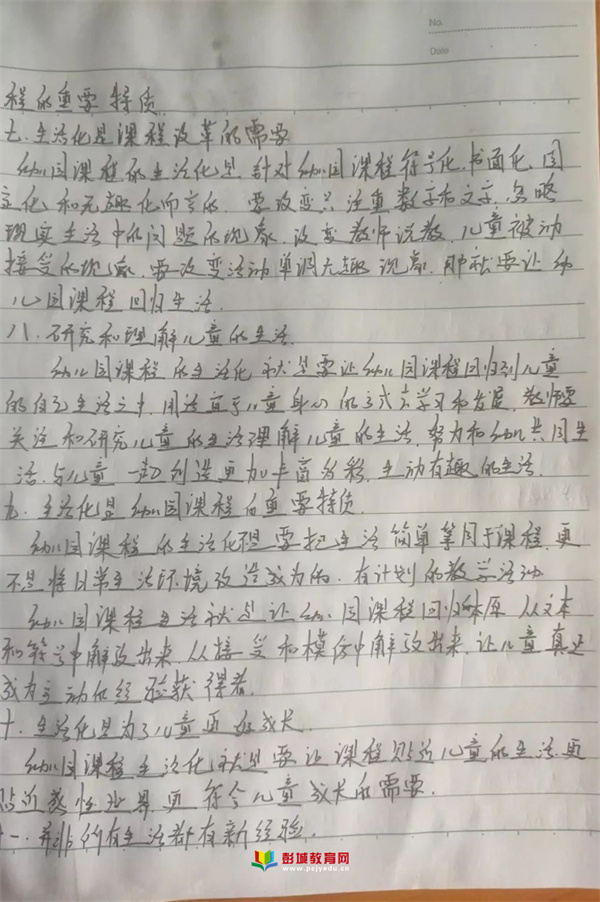 No.
Date
程的重要特质.
七.生活化是课程改革的需要
幼儿园课程的生活化是针对幼儿园课程符号化、书面化、固
定化和无趣化而言的.要改变只注重数字和文字,忽略
现实生活中的问题的现象,改变教师说教,儿童被动
接受的现象.要改变活动单调无趣现象,那就要让幼
儿园课程回归生活.
八.研究和理解儿童的生活.
幼儿园课程的生活化就是要让幼儿园课程回归到儿童
的自己生活之中,用适宜于儿童身心的方式去学习和发展,教师要
关注和研究儿童的生活理解儿童的生活,努力和幼儿共同生
活,与儿童一起创造更加丰富多彩,生动有趣的生活.
九.生活化是幼儿园课程的重要特质.
幼儿园课程的生活化不是要把生活简单等同于课程,更
不是将日常生活环境改造成为的,有计划的教学活动
幼儿园课程生活就是让幼儿园课程回归本原,从文本
和符号中解放出来,从接受和模仿中解放出来,让儿童真正
成为主动的经验获得者.
十.生活化是为了儿童更好成长.
幼儿园课程生活化就是要让课程贴近儿童的生活,更
贴近感性世界,更符合儿童成长的需要.
十一.并非所有生活都有新经验.
彭城教育网
www.pcjyedu.cn